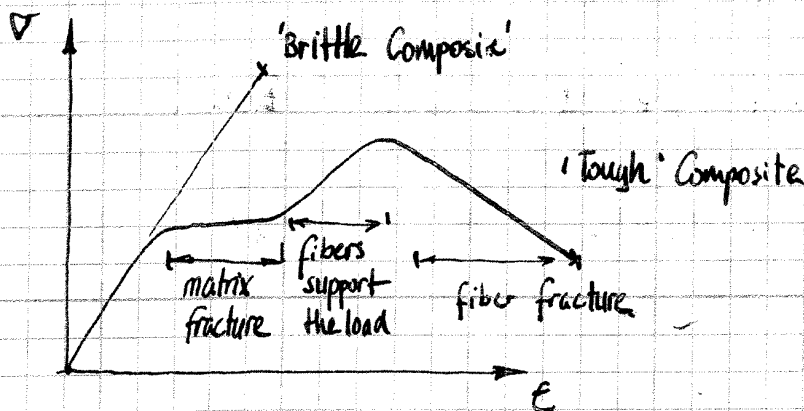 σ
'Brittle Composite'
'Tough' Composite
matrix
fracture
fibers
support
the load
fiber fracture
ε